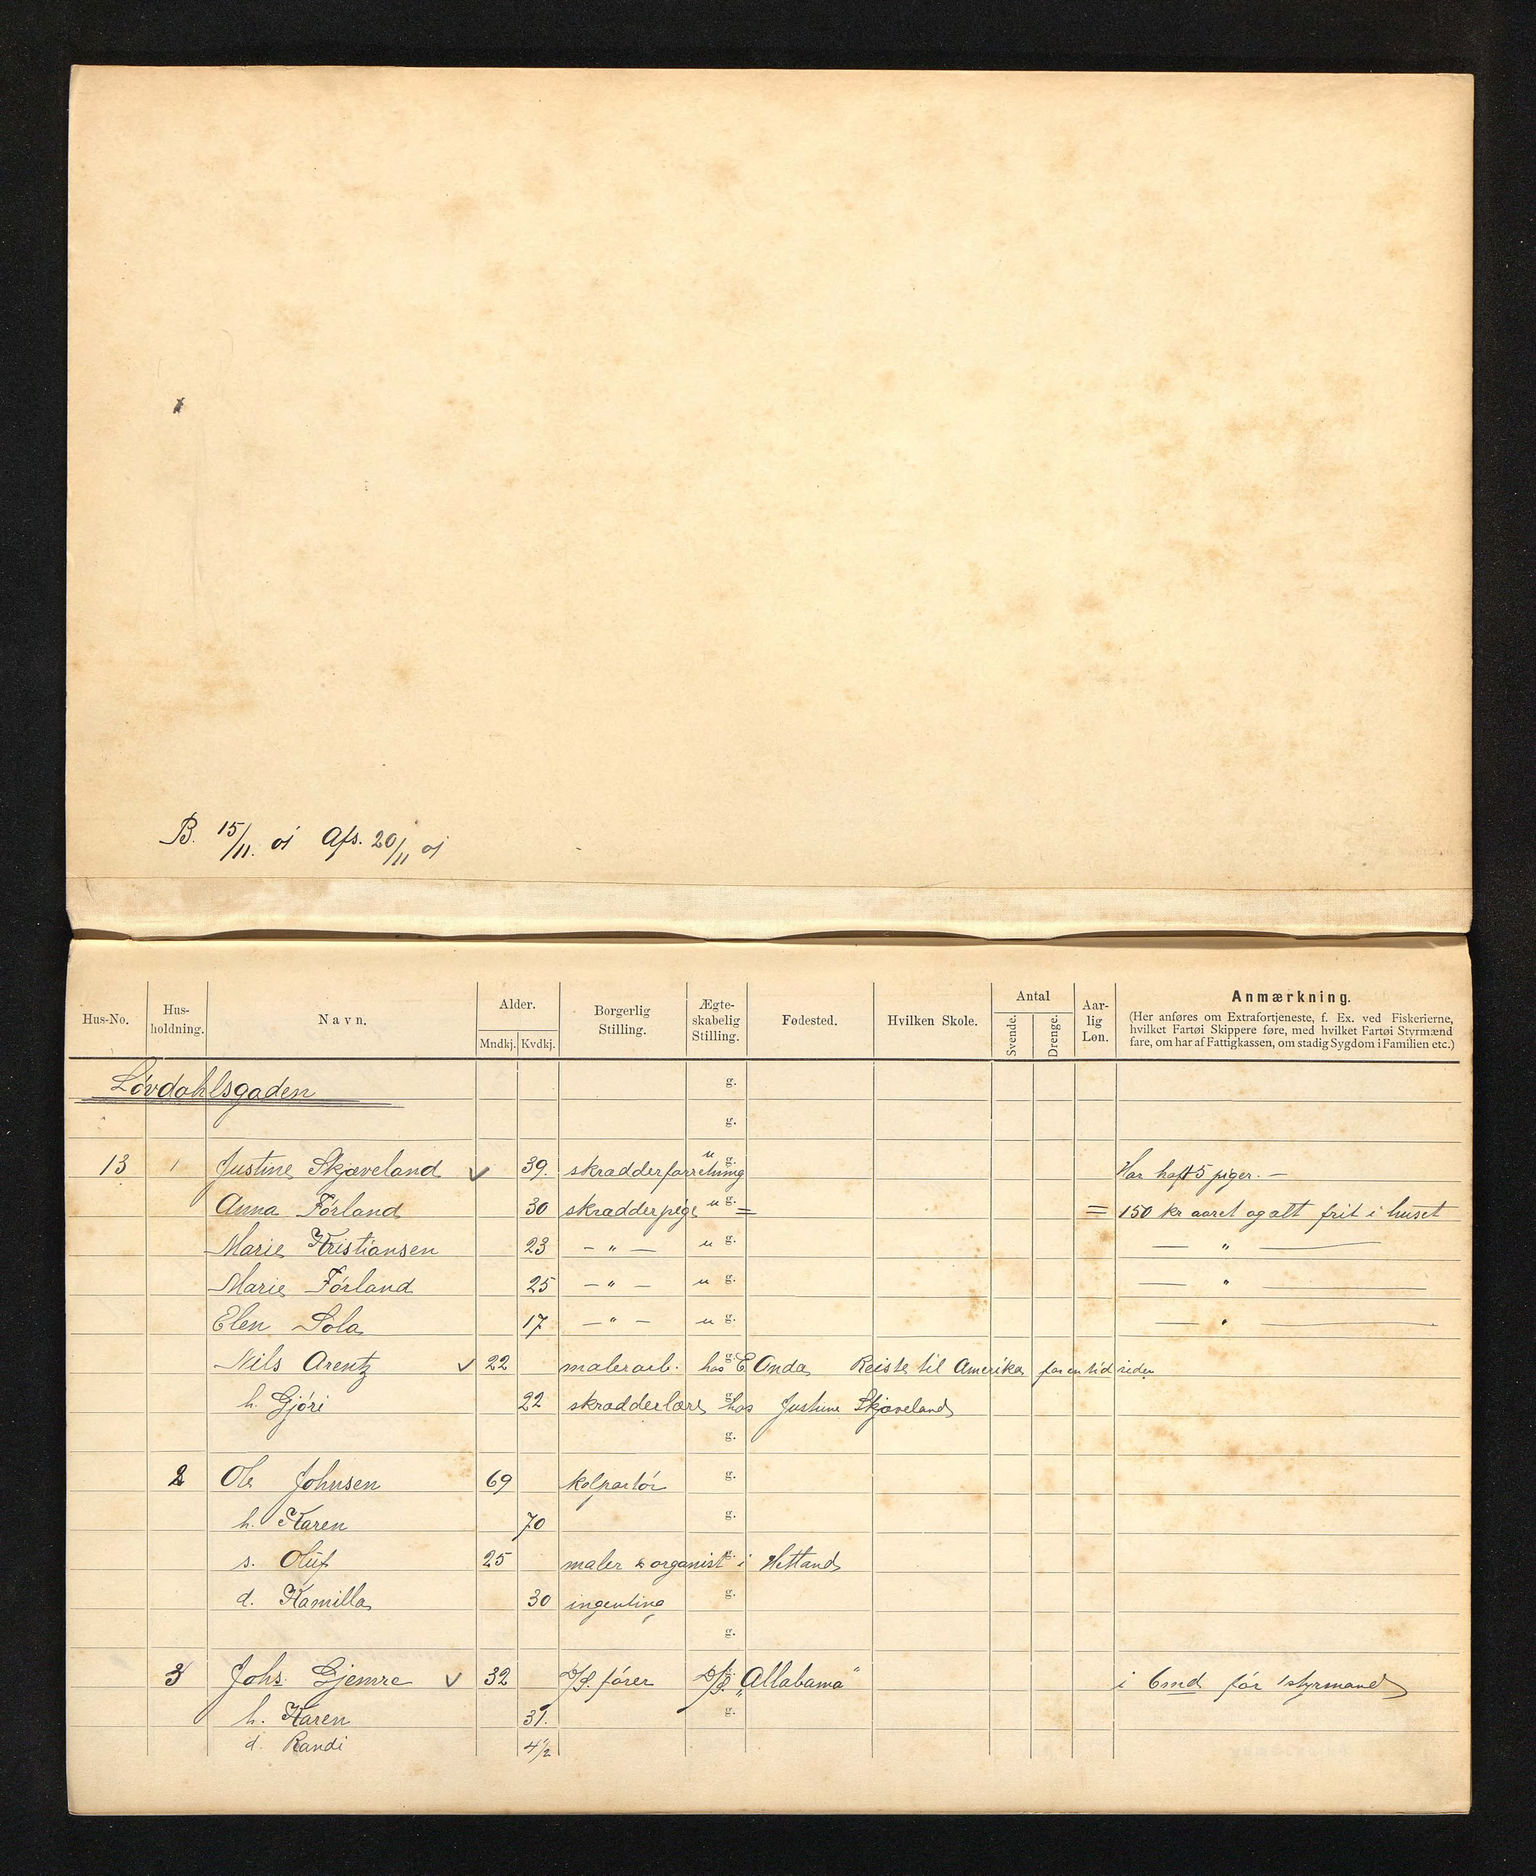 B. 15/11. 01 Afs. 20/11 01
Hus-No. Hus-holdning. Navn. Alder. Mndkj. Kvdkj. Borgerlig Stilling. Ægte-skabelig Stilling. Fødested. Hvilken Skole. Antal Svende. Drenge. Aar-lig Løn. Anmærkning.
(Her anføres om Extrafortjeneste, f. Ex. ved Fiskerierne,
hvilket Fartøi Skippere føre, med hvilket Fartøi Styrmænd
fare, om har af Fattigkassen, om stadig Sygdom i Familien etc.)
Løvdahlsgaden g.
g.
13 1 Justine Skjæveland ✓ 39. skrædderforretning u g. Har haft 5 piger. —
Anna Førland 30 skrædderpige u g. = = 150 kr aaret og alt frit i huset
Marie Kristiansen 23 — " — u g. — " —
Marie Førland 25 — " — u g. — " —
Elen Sola 17 — " — u g. — " —
Nils Arentz ✓ 22 malerarb. g. hos E Anda Reiste til Amerika for en tid siden
h. Gjøri 22 skrædderlære g. hos Justine Skjæveland
g.
2 Ole Johnsen 69 kolportør g.
h. Karen 70 g.
s. Oluf 25 maler & organist g. i Hetland
d. Kamilla 30 ingenting g.
g.
3 Johs. Gjemre ✓ 32 D/S. fører g. D/S. "Allabama" i 6 md før 1 styrmand
h. Karen 31. g.
d. Randi 4 1/2